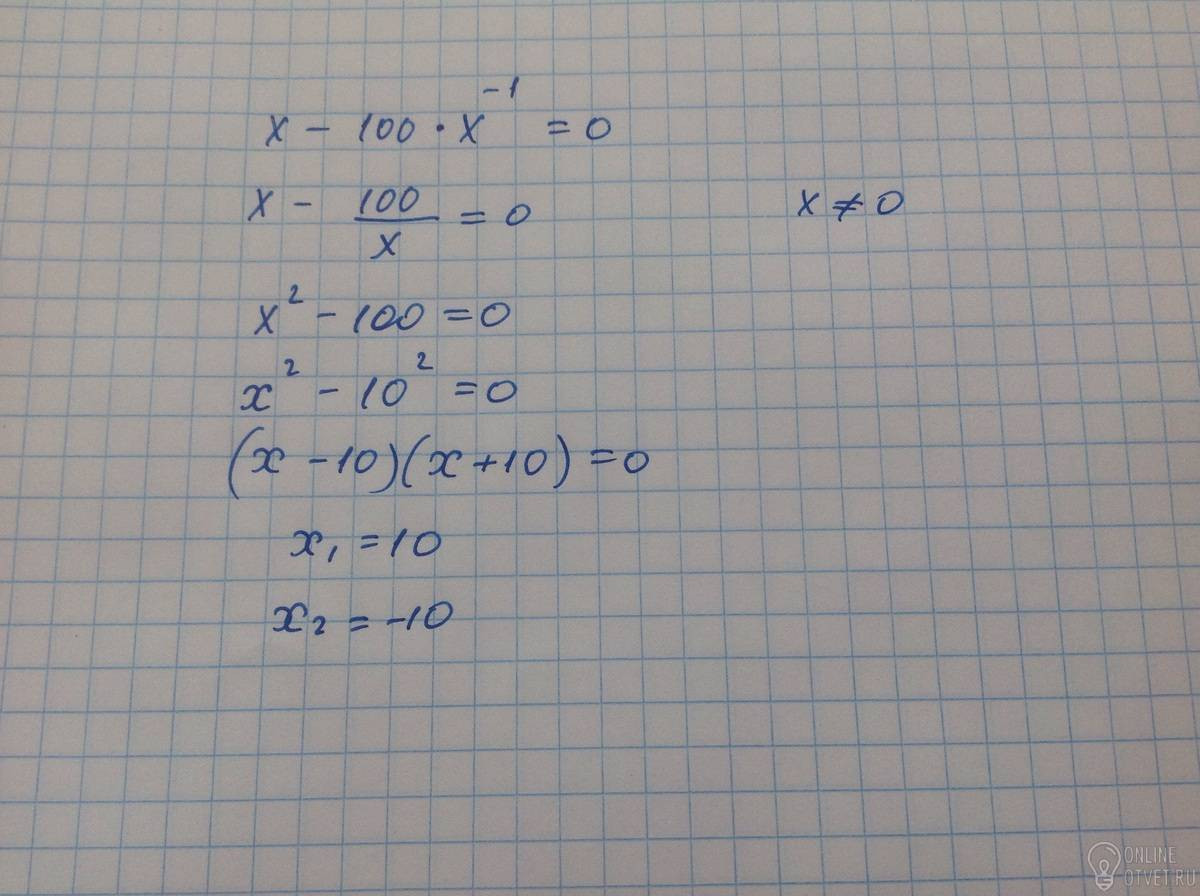 x - 100 · x⁻¹ = 0
x - 100/x = 0    x ≠ 0
x² - 100 = 0
x² - 10² = 0
(x - 10)(x + 10) = 0
x₁ = 10
x₂ = -10
ONLINE
OTVET.RU